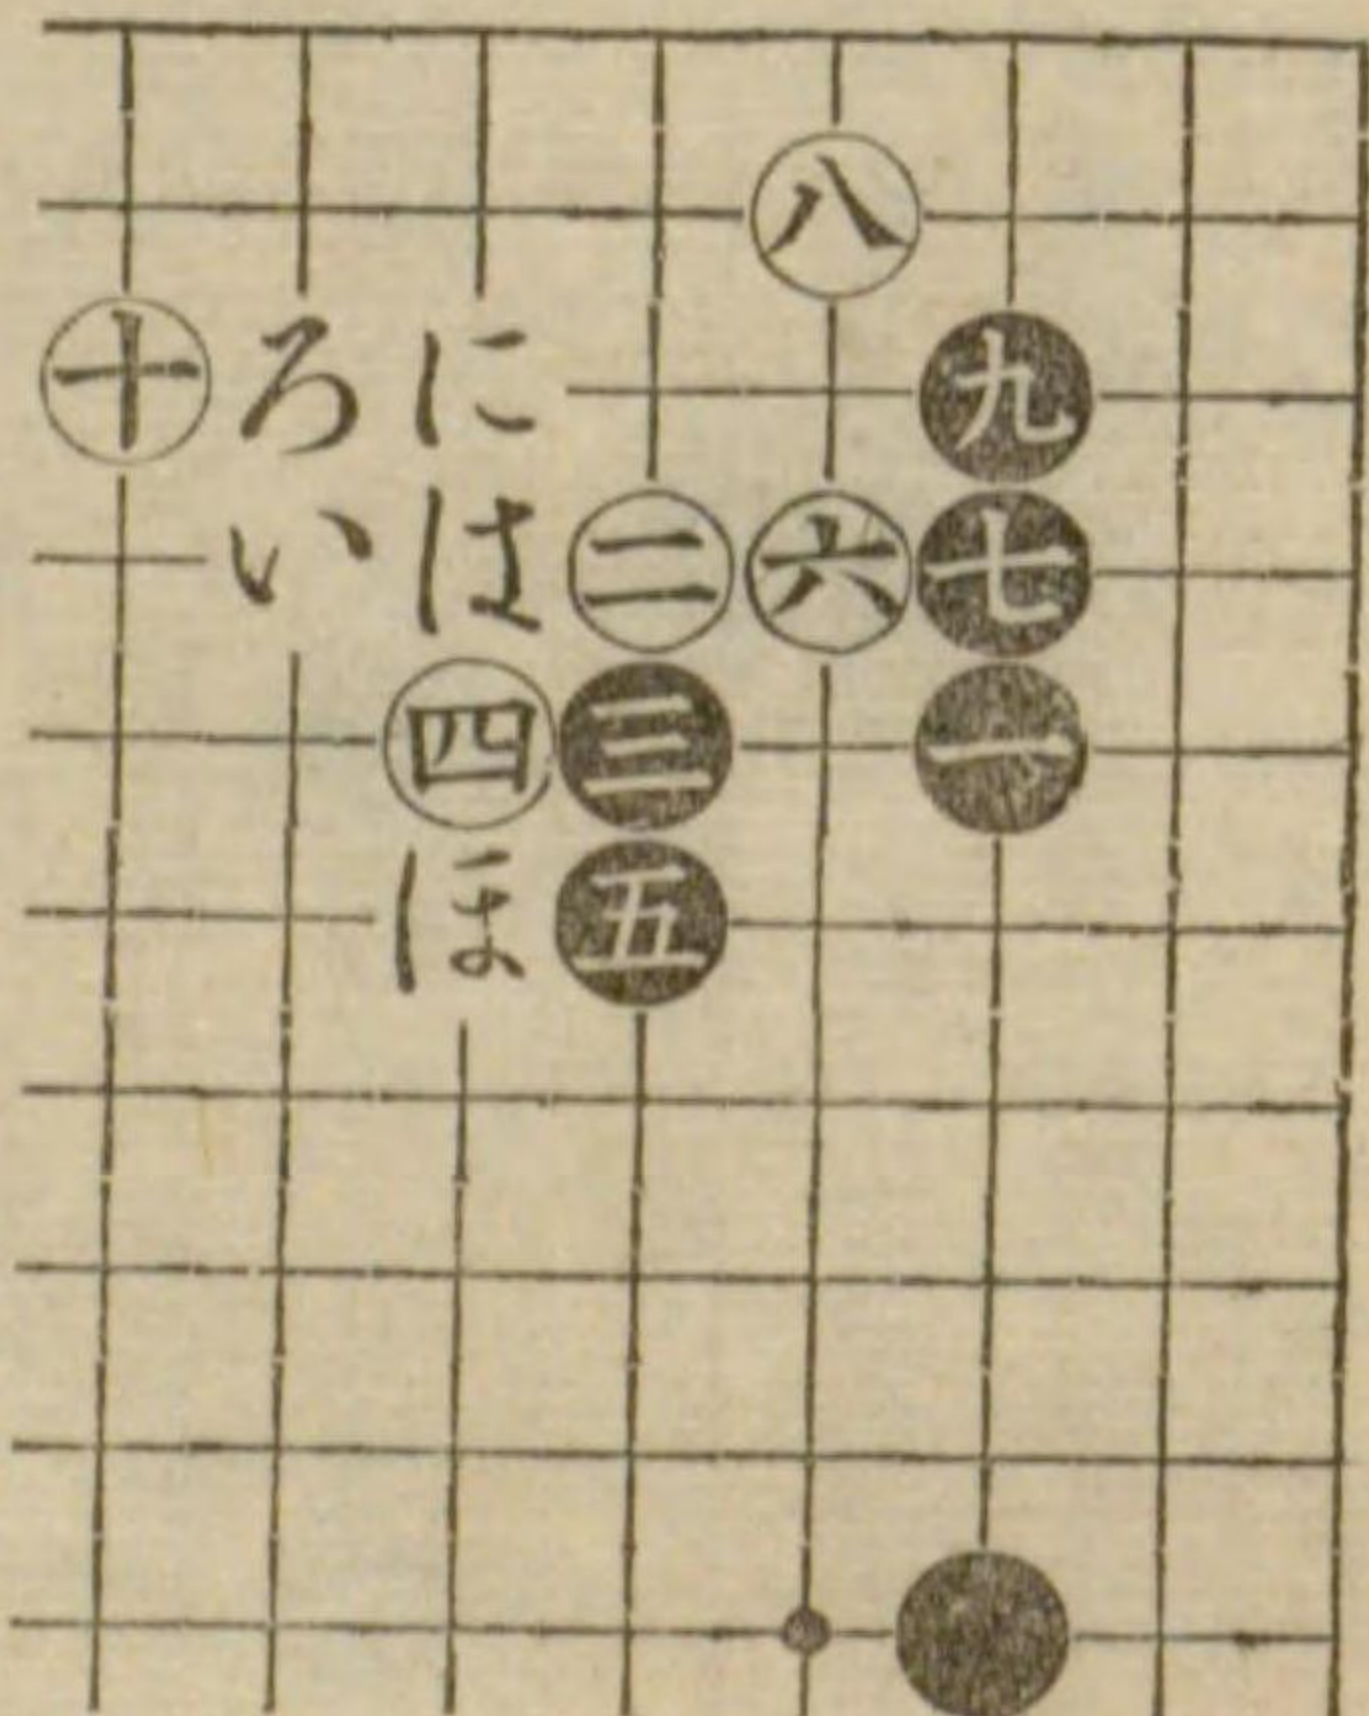 八
十ろに九
いは二六七
四三一
ほ五